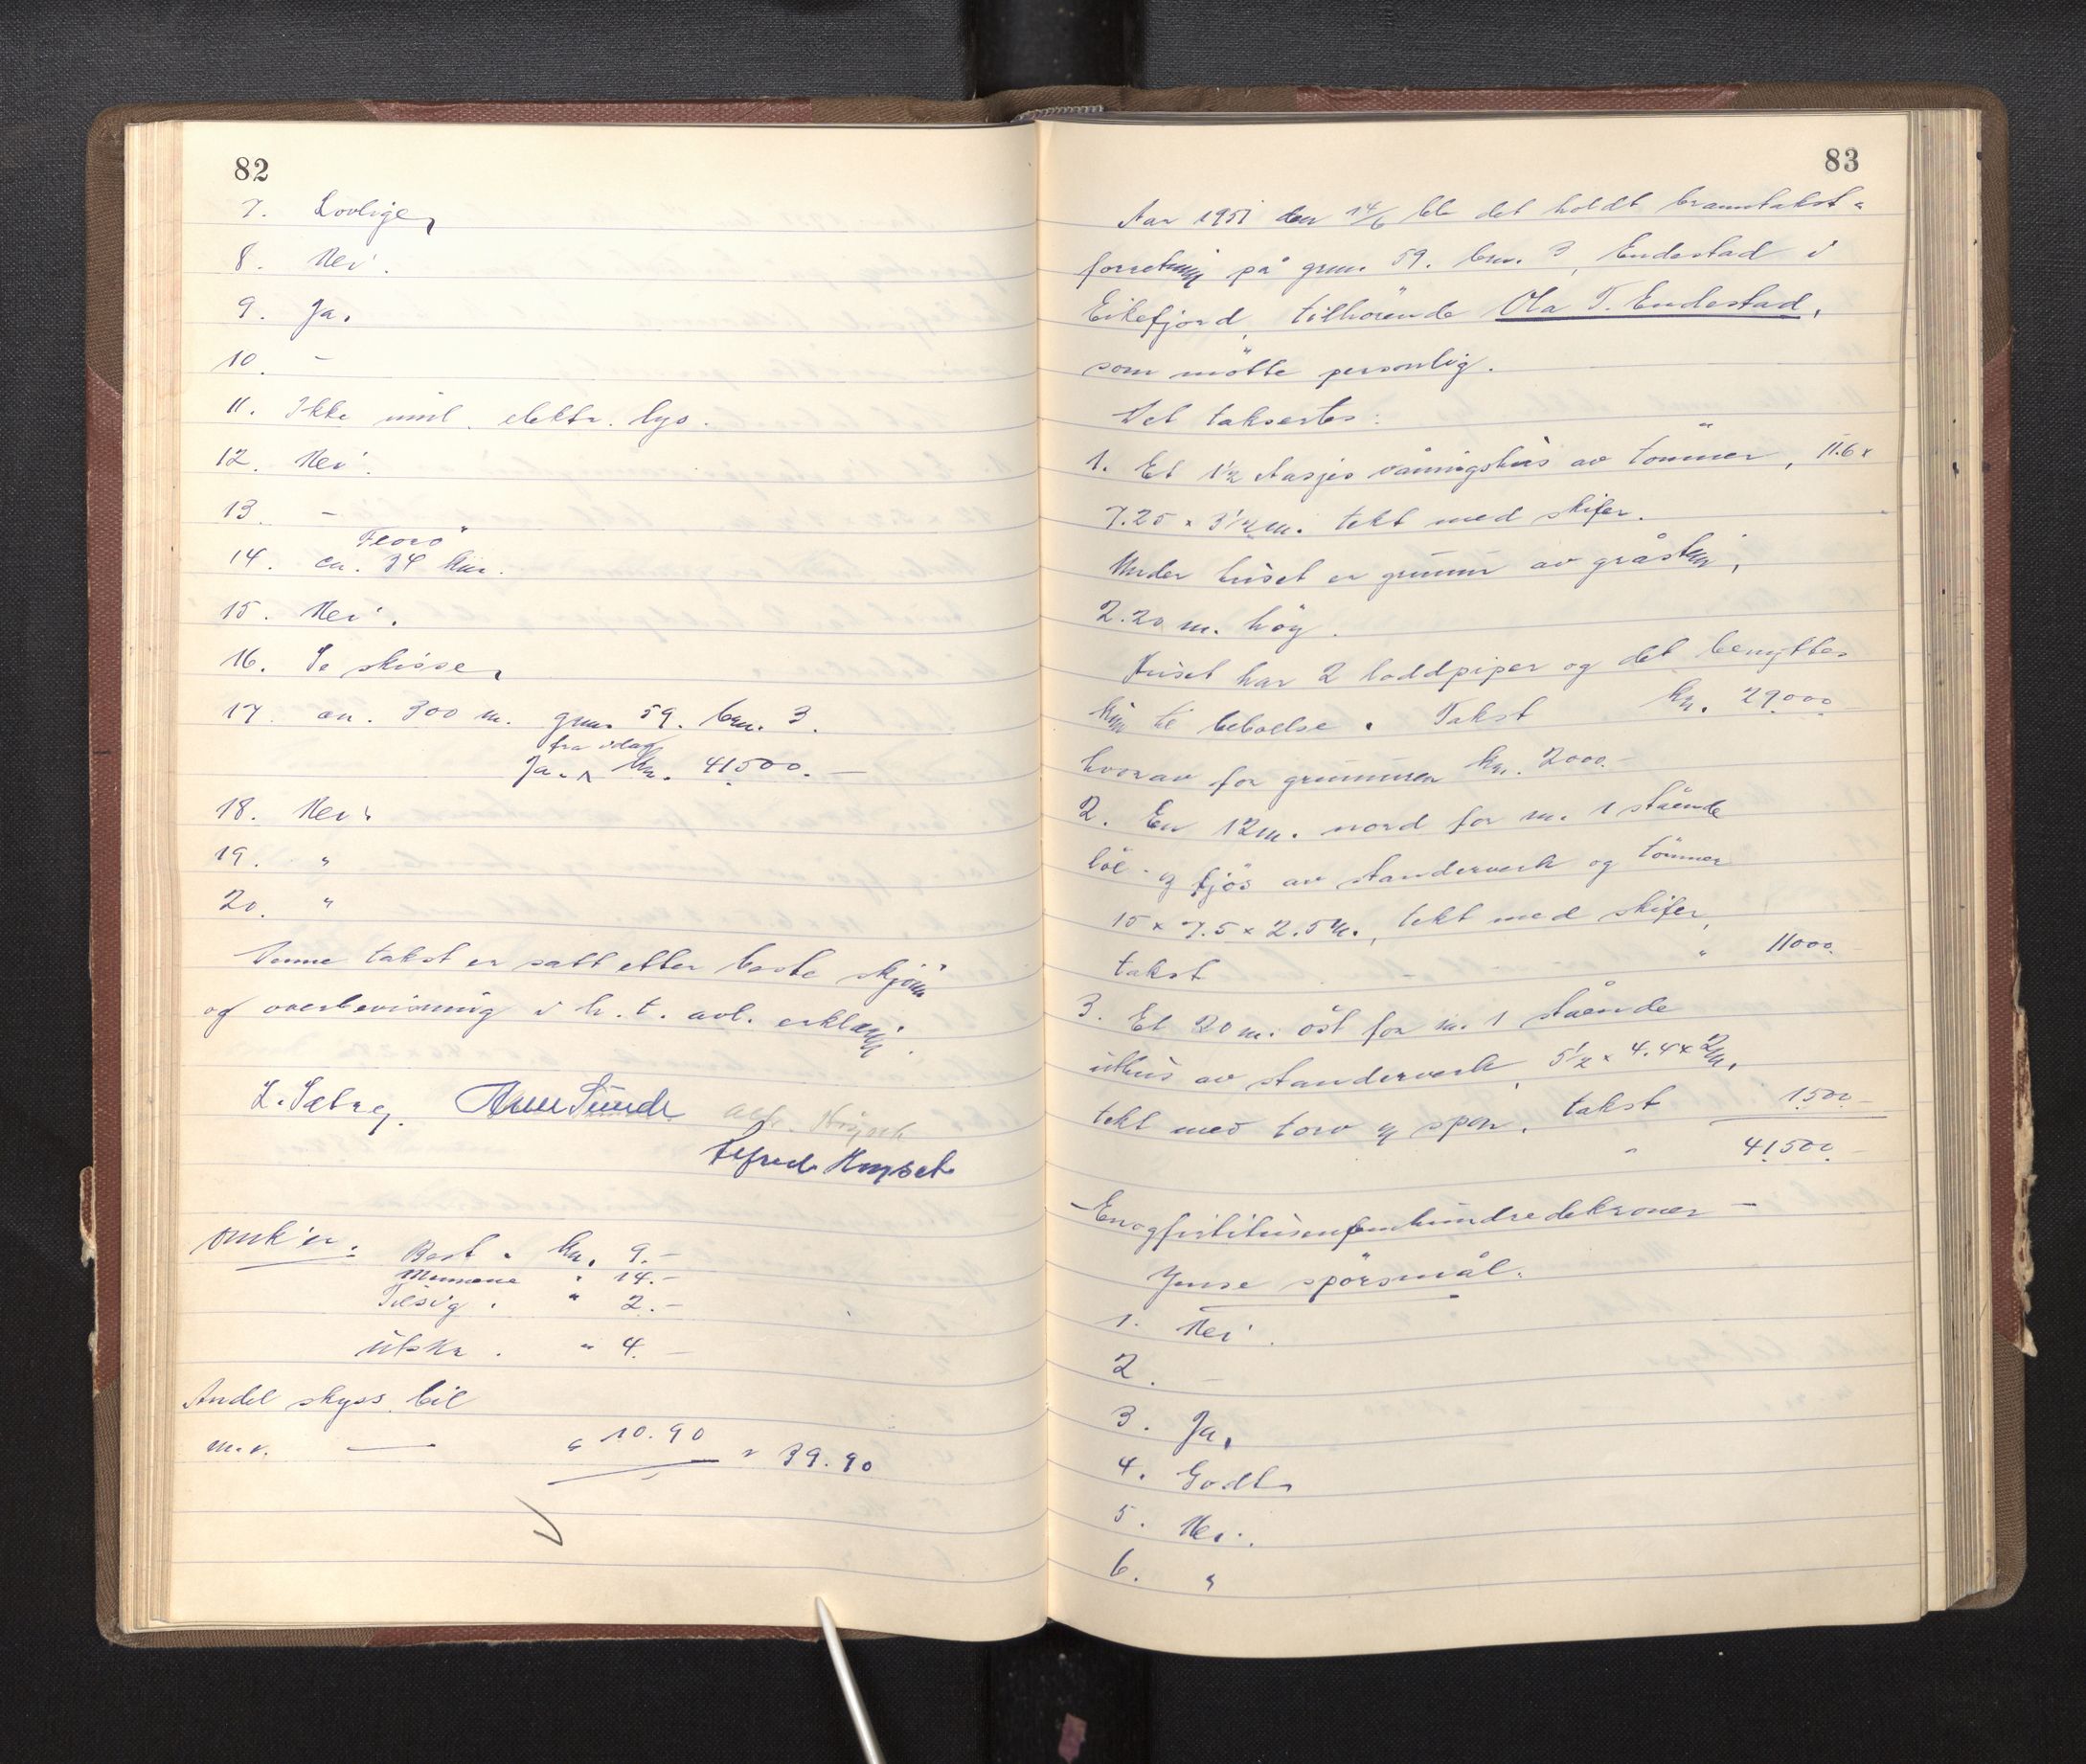 82
7. Lovlige,
8. Nei.
9. Ja.
10. -
11. Ikke innl. elektr. lys.
12. Nei.
13. -
Florö
14. ca. 34 km.
15. Nei.
16. Se skisse,
17. ca. 300 m. gnr. 59. bnr. 3.
fra idag
Ja. kr. 41500.-
18. Nei.
19. "
20. "
Denne takst er satt etter beste skjönn
og overbevisning i h. t. avl. erklæring.
L. Sæbrey. Arne Sunde
Alfred Hopset
Omk'er: Best. kr. 9.-
Mennene " 14.-
Tilsig. " 2.-
Utskr. " 4.-
Andel skyss bil
m.v. — " 10.90 " 39.90
83
Aar 1951 den 14/6 ble det holdt branntakst-
forretning på gnr. 59. bnr. 3, Endestad i
Eikefjord, tilhörende Ola T. Endestad,
som mötte personlig.
Det taksertes:
1. Et 1½ etasjes våningshus av tömmer, 11.6 x
7.25 x 3½ m. tekt med skifer.
Under huset er grunnmur av gråstein,
2.20 m. höy.
Huset har 2 loddpiper og det benyttes
kun til beboelse. Takst kr. 29000.-
hvorav for grunnmuren kr. 2000.-
2. En 12 m. nord for nr. 1 stående
löe- og fjös av standerverk og tömmer
15 x 7.5 x 2.5 m., tekt med skifer,
takst " 11000.-
3. Et 20 m. öst for nr. 1 stående
uthus av standerverk, 5½ x 4.4 x 2 m,
tekt med torv og spon. takst 1500.-
" 41500.-
-Enogförtitusenfemhundredekroner-
Jense spörsmål.
1. Nei.
2. -
3. Ja,
4. Godt,
5. Nei.
6. "